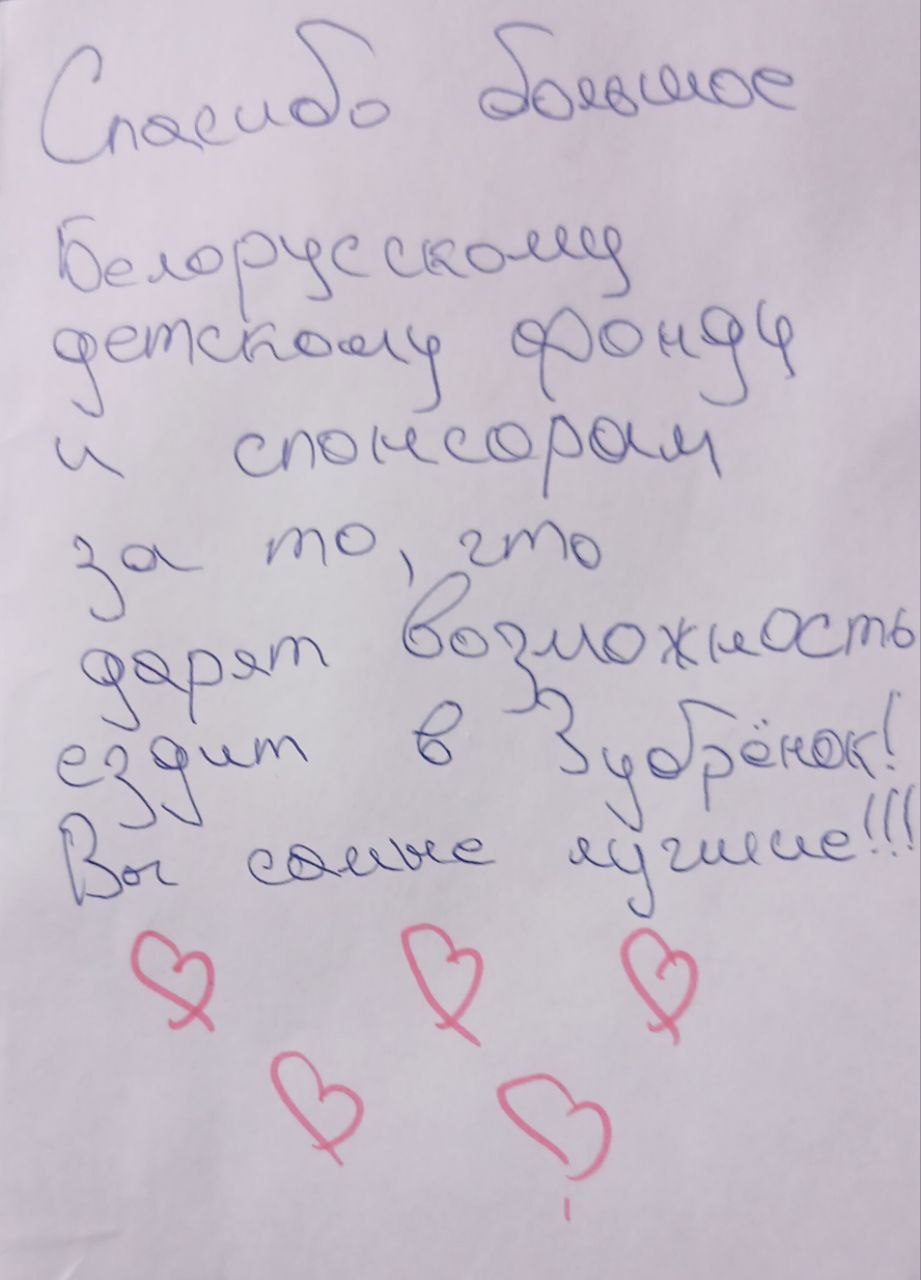 Спасибо большое
Белорусскому
детскому фонду
и спонсорам
за то, что
дарят возможность
ездит в Зубрёнок!
Вы самые лучшие!!!